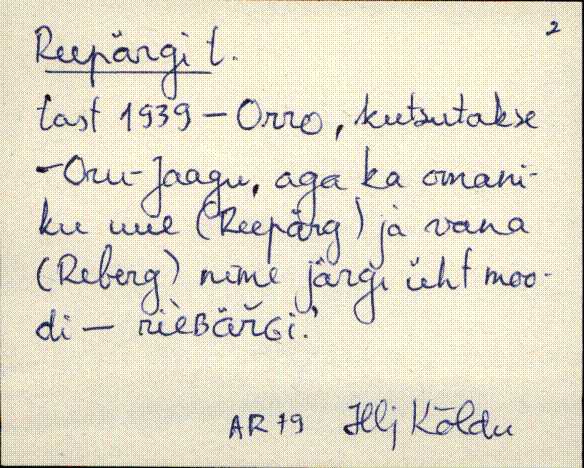 2
Reepärgi t.
Last 1939 – Orro, kutsutakse
– Oru-Jaagu, aga ka omani-
ku uue (Reepärg) ja vana
(Reberg) nime järgi üht moo-
di – rièBäřGi.'
AR 79 Hlj Kõldu